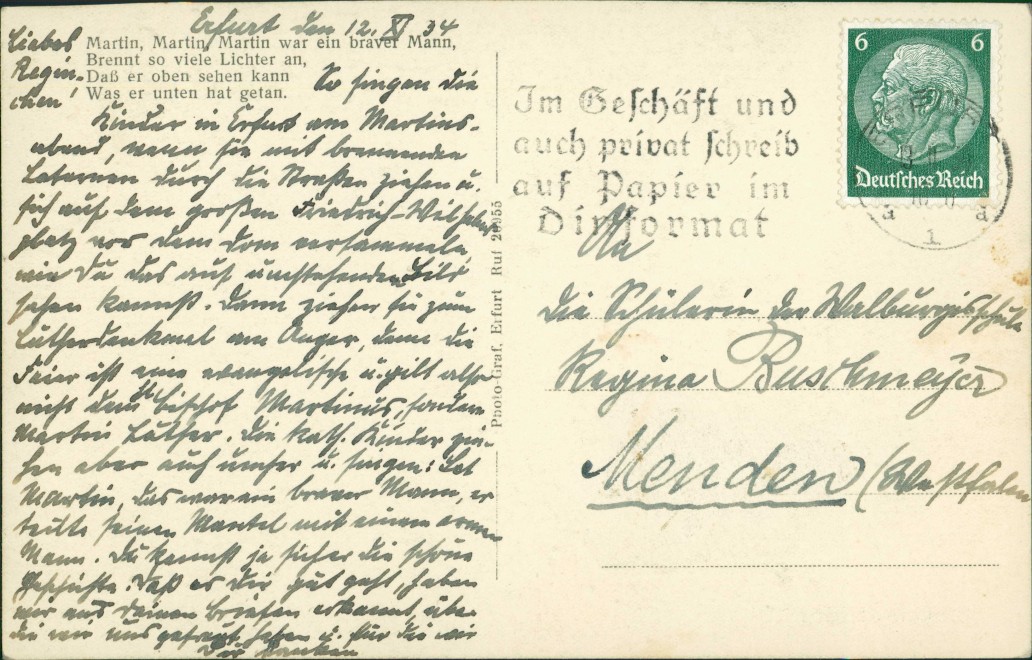 Erfurt den 12. XI 34
Liebes
Regin-
chen!
Martin, Martin, Martin war ein braver Mann,
Brennt so viele Lichter an,
Daß er oben sehen kann
Was er unten hat getan.
So singen die
Kinder in Erfurt am Martins-
abend, wenn sie mit brennenden
Laternen durch die Straßen ziehen u.
sich auf dem großen Friedrich-Wilhelms
platz vor dem Dom versammeln,
wie Du das auf umstehendem Bild
sehen kannst. Dann ziehen sie zum
Lutherdenkmal am Anger, denn die
Feier ist eine evangelische u. gilt also
nicht dem hl Bischof Martinus, sondern
Martin Luther. Die kath. Kinder zie-
hen aber auch umher u. singen: Set
Martin, das war ein braver Mann, er
teilte seinen Mantel mit einem armen
Mann. Du kennst ja sicher die schöne
Geschichte. Daß es Dir gut geht, haben
wir aus Deinen Briefen erkannt, über
die wir uns gefreut haben u. für die wir
Dir danken
Photo-Graf, Erfurt Ruf 26955
Im Geschäft und
auch privat schreib
auf Papier im
Dinformat
6 6
Deutsches Reich
a a
1
An
die Schülerin der Walburgisschule
Regina Buschmeyer
Menden (Westfalen